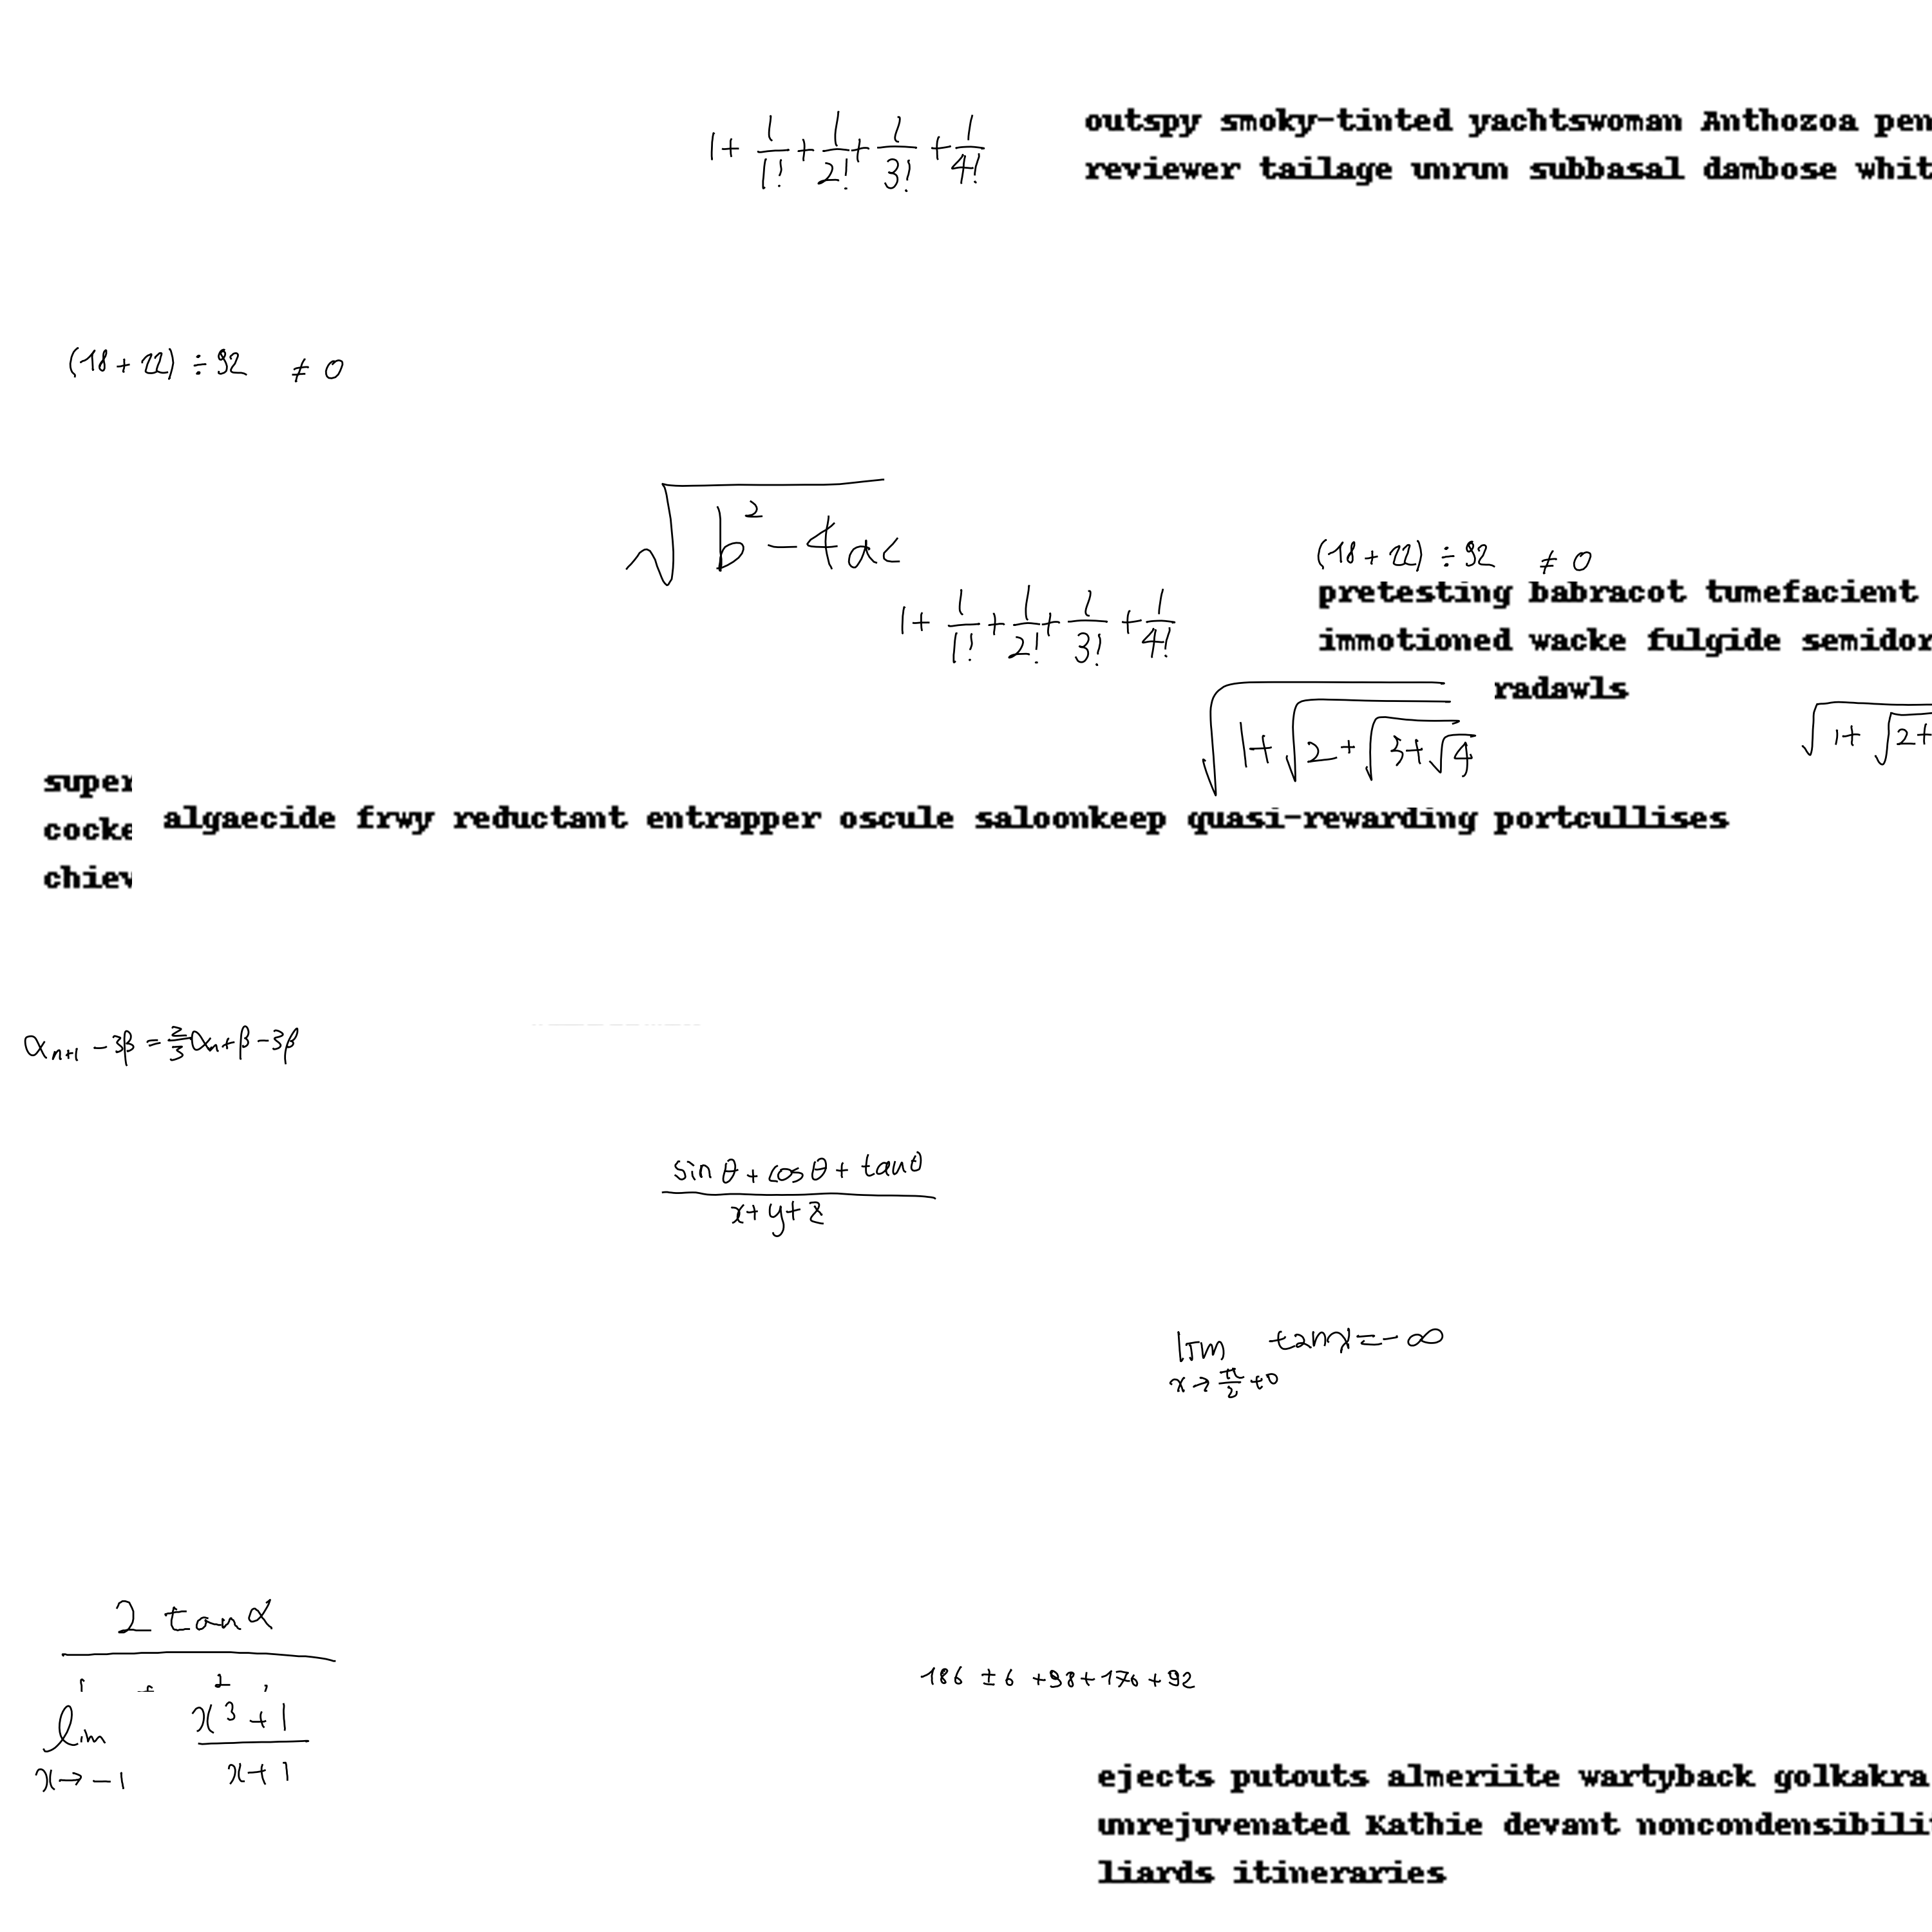 1 + \frac{1}{1!} + \frac{1}{2!} + \frac{1}{3!} + \frac{1}{4!}
outspy smoky-tinted yachtswoman Anthozoa pen
reviewer tailage unrun subbasal dambose whit
(18 + 22) ÷ 92 ≠ 0
\sqrt{b^2 - 4ac}
(18 + 22) ÷ 92 ≠ 0
1 + \frac{1}{1!} + \frac{1}{2!} + \frac{1}{3!} + \frac{1}{4!}
pretesting babracot tumefacient
immotioned wacke fulgide semidor
radawls
\sqrt{1 + \sqrt{2 + \sqrt{3 + \sqrt{4}}}}
\sqrt{1 + \sqrt{2 +
super
cocke
chiev
algaecide frwy reductant entrapper oscule saloonkeep quasi-rewarding portcullises
α_{n+1} - 3β = \frac{2}{3}α_n + β - 3β
\frac{sin θ + cos θ + tan θ}{x + y + z}
lim_{x → \frac{π}{2} + 0} tan x = -∞
2 tan α
lim_{x → -1} \frac{x^3 + 1}{x + 1}
186 ± 6 + 98 + 176 + 92
ejects putouts almeriite wartyback golkakra
unrejuvenated Kathie devant noncondensibili
liards itineraries